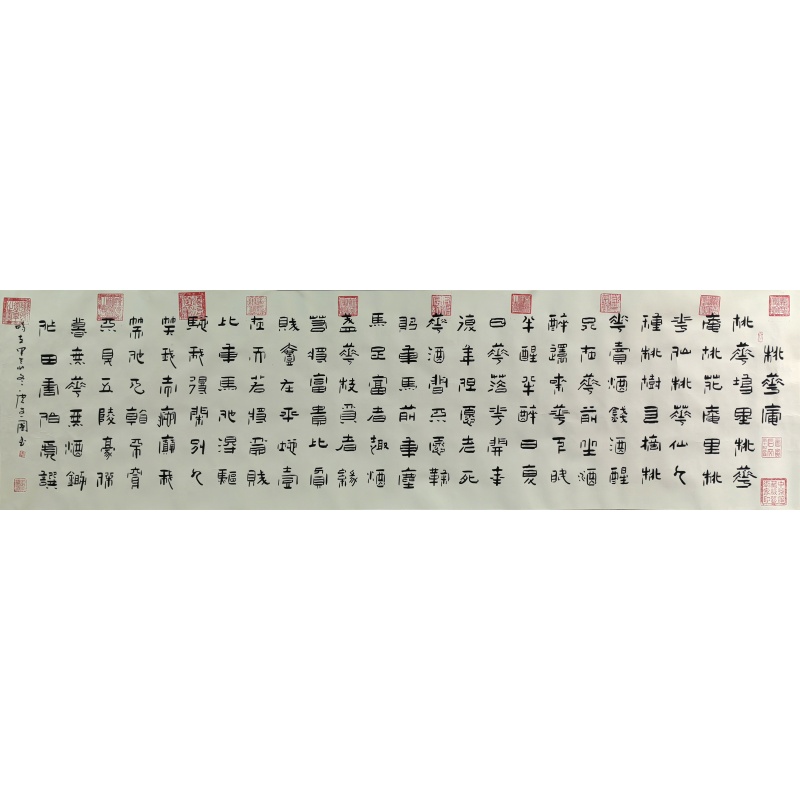 桃華庵
桃華塢里桃華
庵桃花庵里桃
花仙桃華仙人
種桃樹又摘桃
花賣酒錢酒醒
只在華前坐酒
醉還來華下眠
半醒半醉日復
日華落花開年
復年但願老死
華酒間不願鞠
躬車馬前車塵
馬足富者趣酒
盞華枝貧者緣
若將富貴比貧
賤壹在平地壹
在天若將貧賤
比車馬他得驅
馳我得閑別人
笑我忒瘋癲我
笑他人看不穿
不見五陵豪傑
墓無華無酒鋤
作田唐伯虎譔